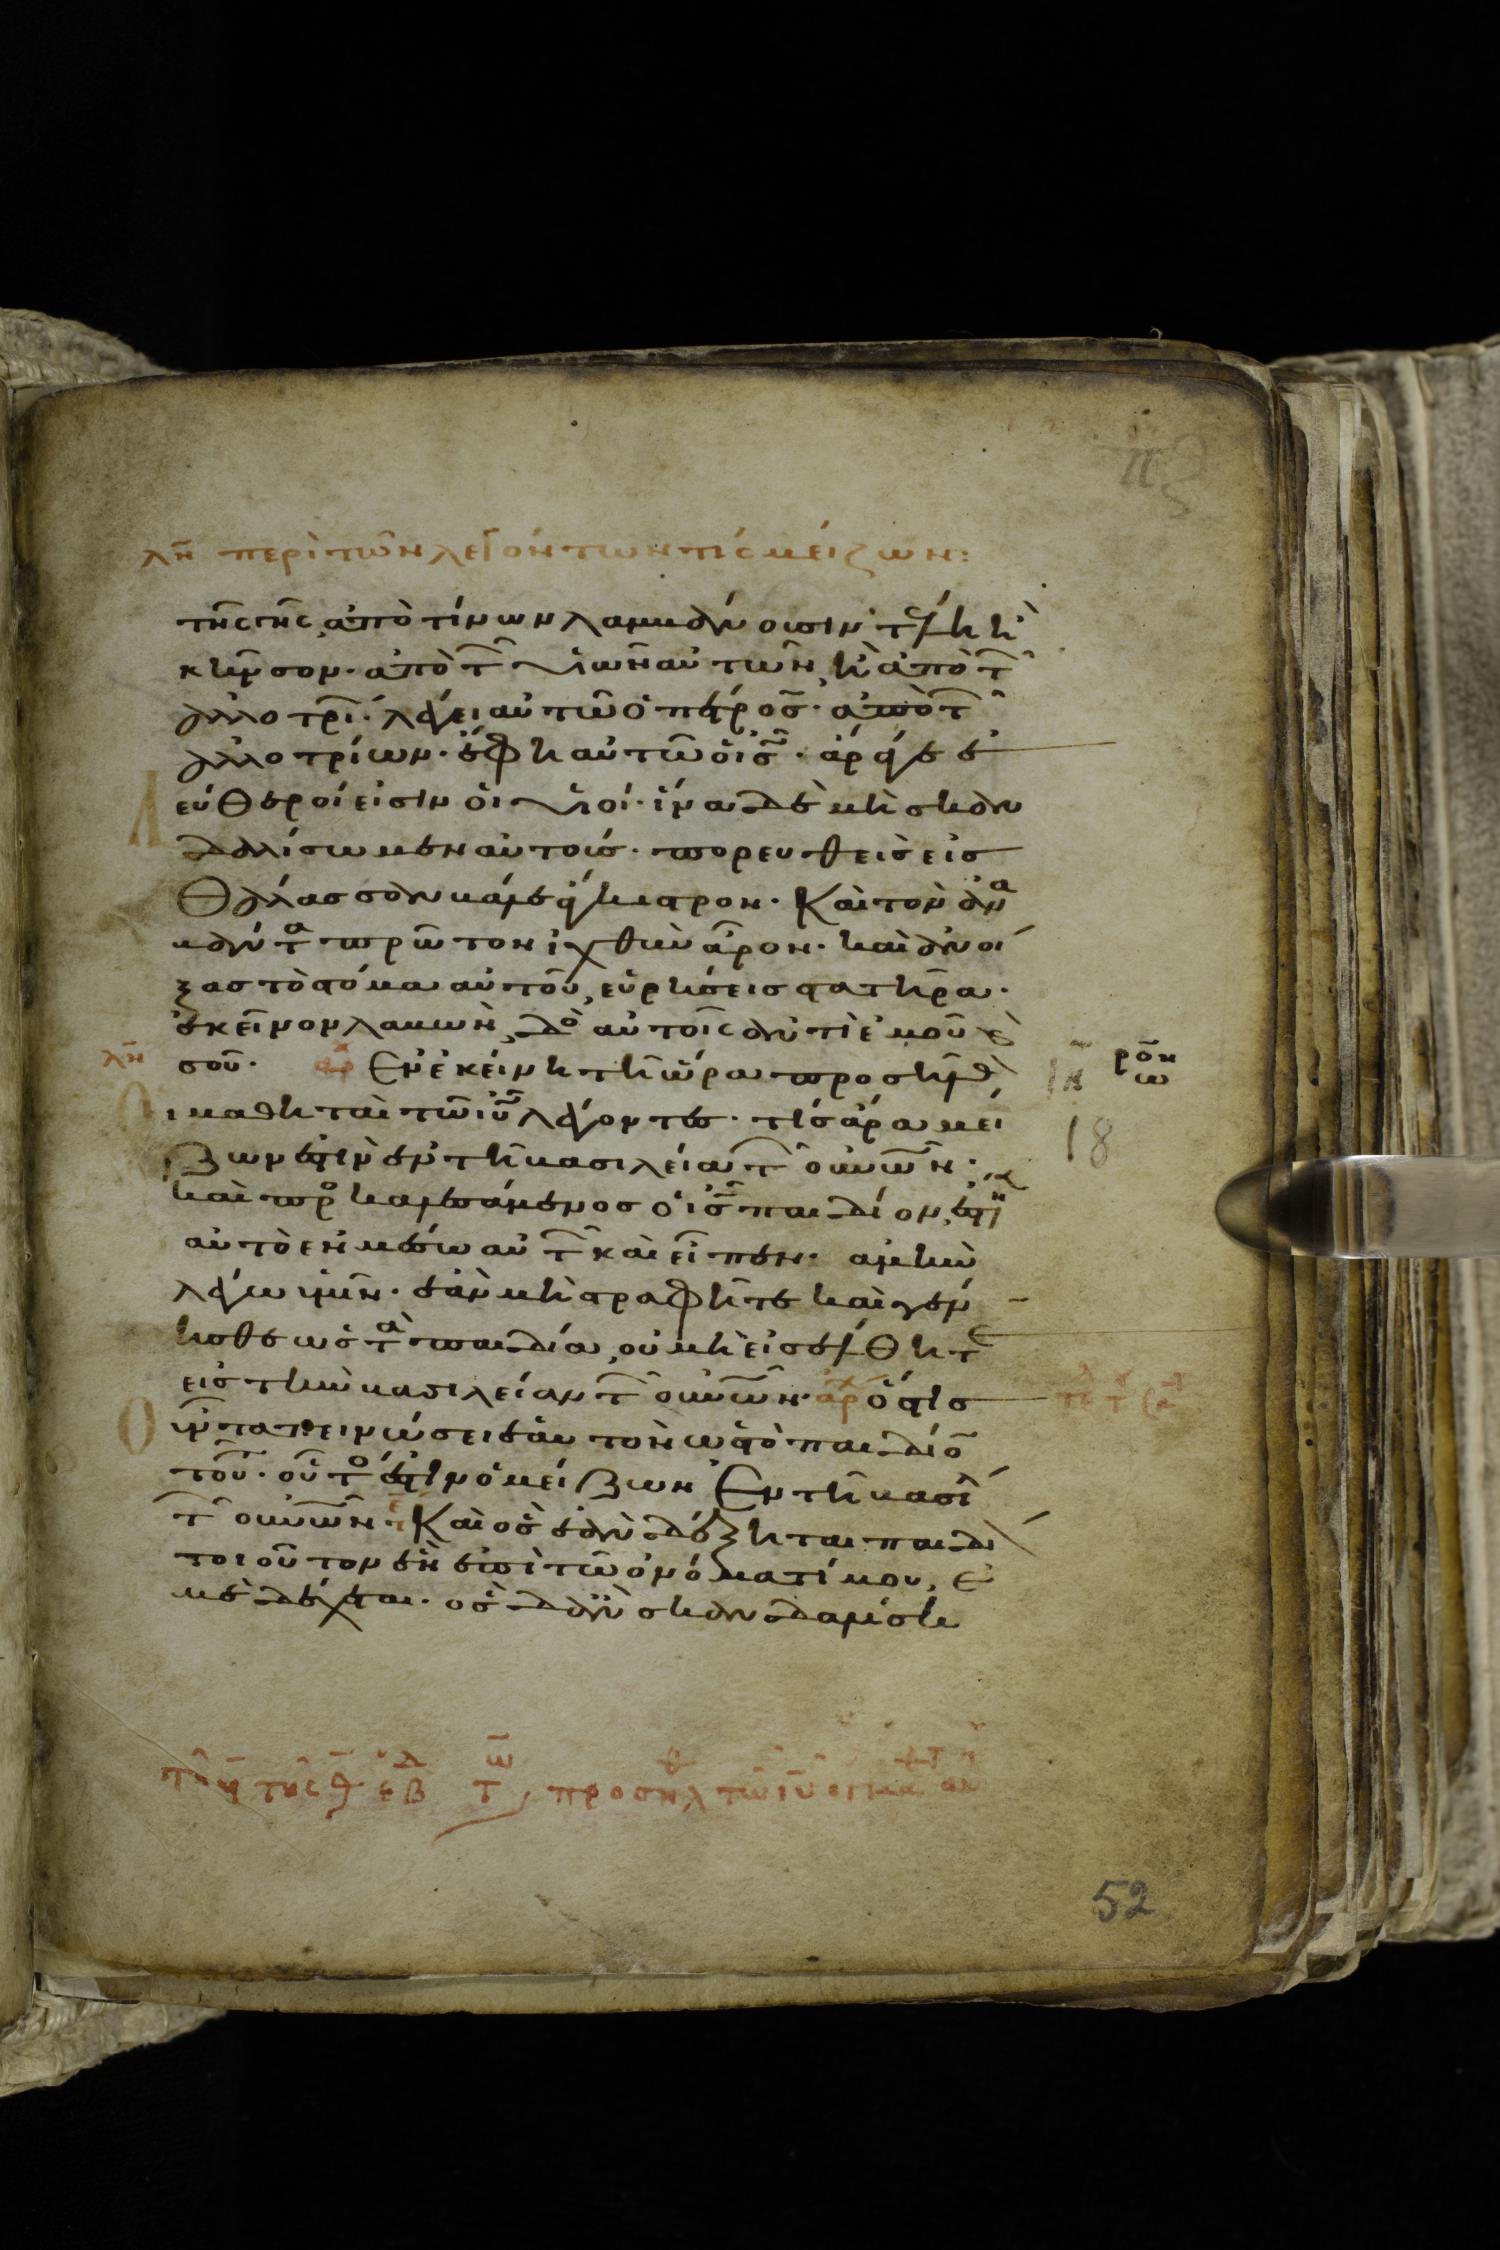 πζ
λη περὶ τῶν λεγόντων τίς μείζων:
τῆς γῆς, ἀπὸ τίνων λαμβάνουσιν τέλη ἢ
κῆνσον· ἀπὸ τῶν υἱῶν αὐτῶν, ἢ ἀπὸ τῶν
ἀλλοτρί· λέγει αὐτῶ ὁ πέτρος· ἀπὸ τῶν
ἀλλοτρίων· ἔφη αὐτῶ ὁ ις· ἄρα γε ἐ
λεύθεροί εἰσιν οἱ υἱοί· ἵνα δὲ μὴ σκαν
δαλίσωμεν αὐτούς· πορευθεὶς εἰς
θάλασσαν βάλε ἄγκιστρον· Καὶ τὸν ἀνα
βάντα πρῶτον ἰχθὺν ἆρον· καὶ ἀνοί
ξας τὸ στόμα αὐτοῦ, εὑρήσεις στατῆρα·
ἐκεῖνον λαβὼν, δὸς αὐτοῖς ἀντὶ ἐμοῦ καὶ
λη σοῦ· αρχ Ἐν ἐκείνη τῆ ὥρα προσῆλθον
οἱ μαθηταὶ τῶ ιυ λέγοντες· τίς ἄρα μεί
ζων ἐστὶν ἐν τῆ βασιλεία τῶν οὐνῶν·
καὶ προσκαλεσάμενος ὁ ις παιδίον, ἔστησεν
αὐτὸ ἐν μέσω αὐτῶν καὶ εἶπεν· ἀμὴν
λέγω ὑμῖν· ἐὰν μὴ στραφῆτε καὶ γέν
ησθε ὡς τὰ παιδία, οὐ μὴ εἰσέλθητε
εἰς τὴν βασιλείαν τῶν οὐνῶν· αρχ ὅστις
οὖν ταπεινώσει ἑαυτὸν ὡς τὸ παιδίον
τοῦτο· οὗτός ἐστιν ὁ μείζων Ἐν τῆ βασιλεία
τῶν οὐνῶν· Καὶ ὃς ἐὰν δέξηται παιδίον
τοιοῦτον ἓν ἐπὶ τῶ ὀνόματί μου, ἐ
μὲ δέχεται· ὃς δ' ἂν σκανδαλίση
18
52